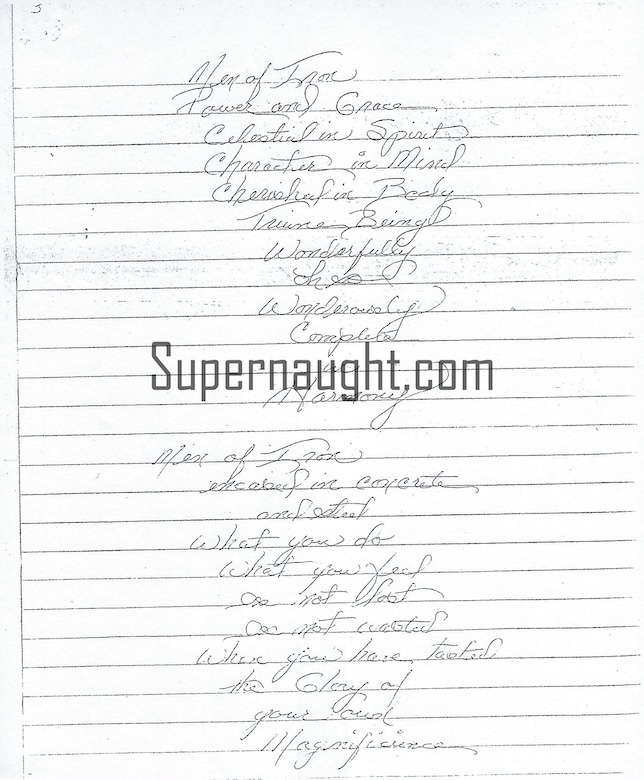 Men of Iron
Power and Grace
Celestial in Spirit
Character in Mind
Cherished in Body
Triune Being
Wonderfully
Oh so
Wonderously
Complete
Supernaught.com
Harmony
Men of Iron
encased in concrete
and steel
What you do
What you feel
Is not lost
Is not wasted
When you have tasted
the Glory of
your own
Magnificence